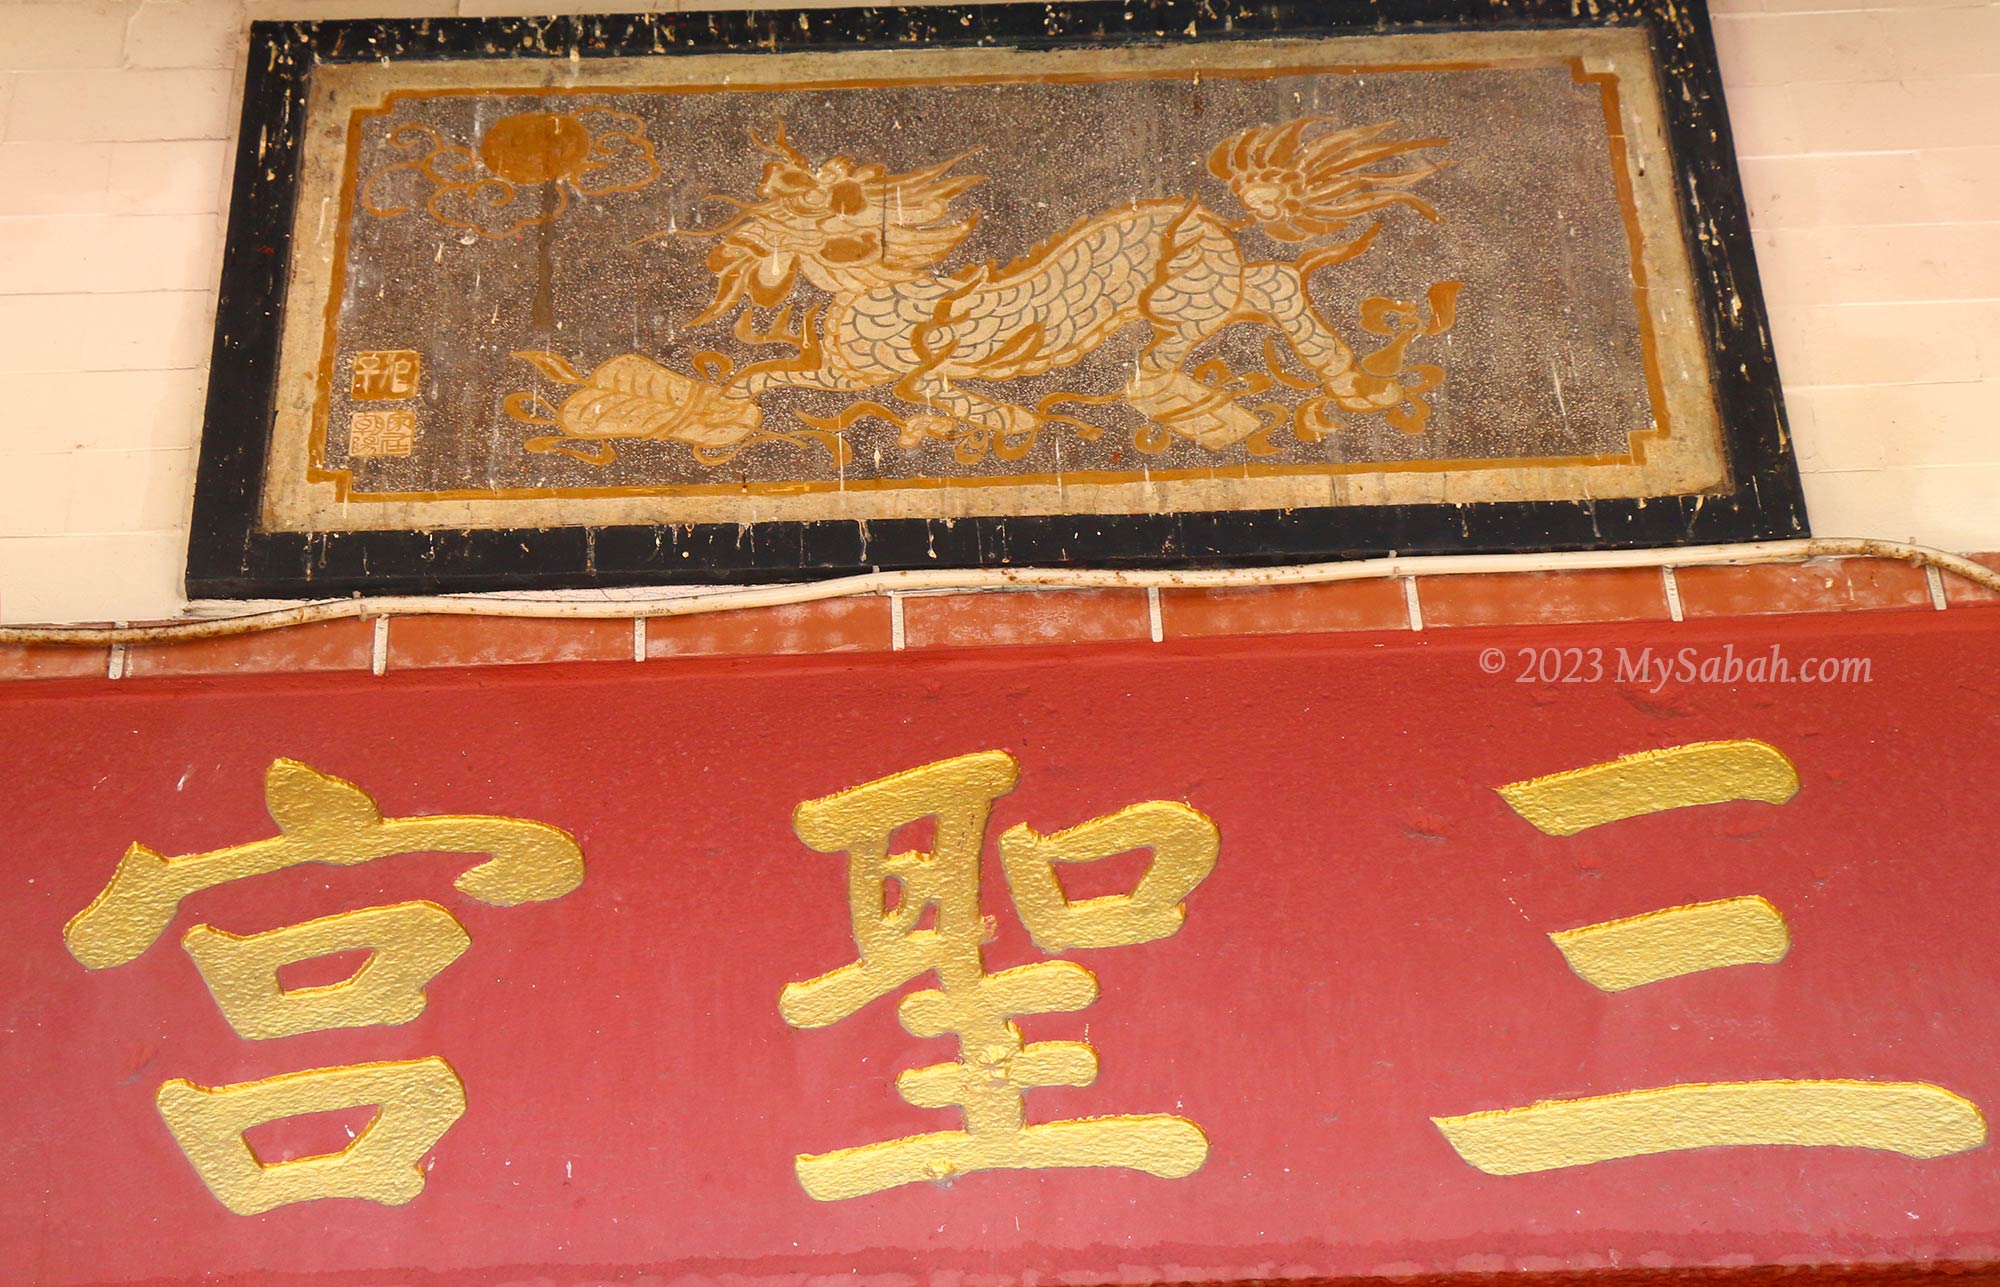 © 2023 MySabah.com
三聖宮